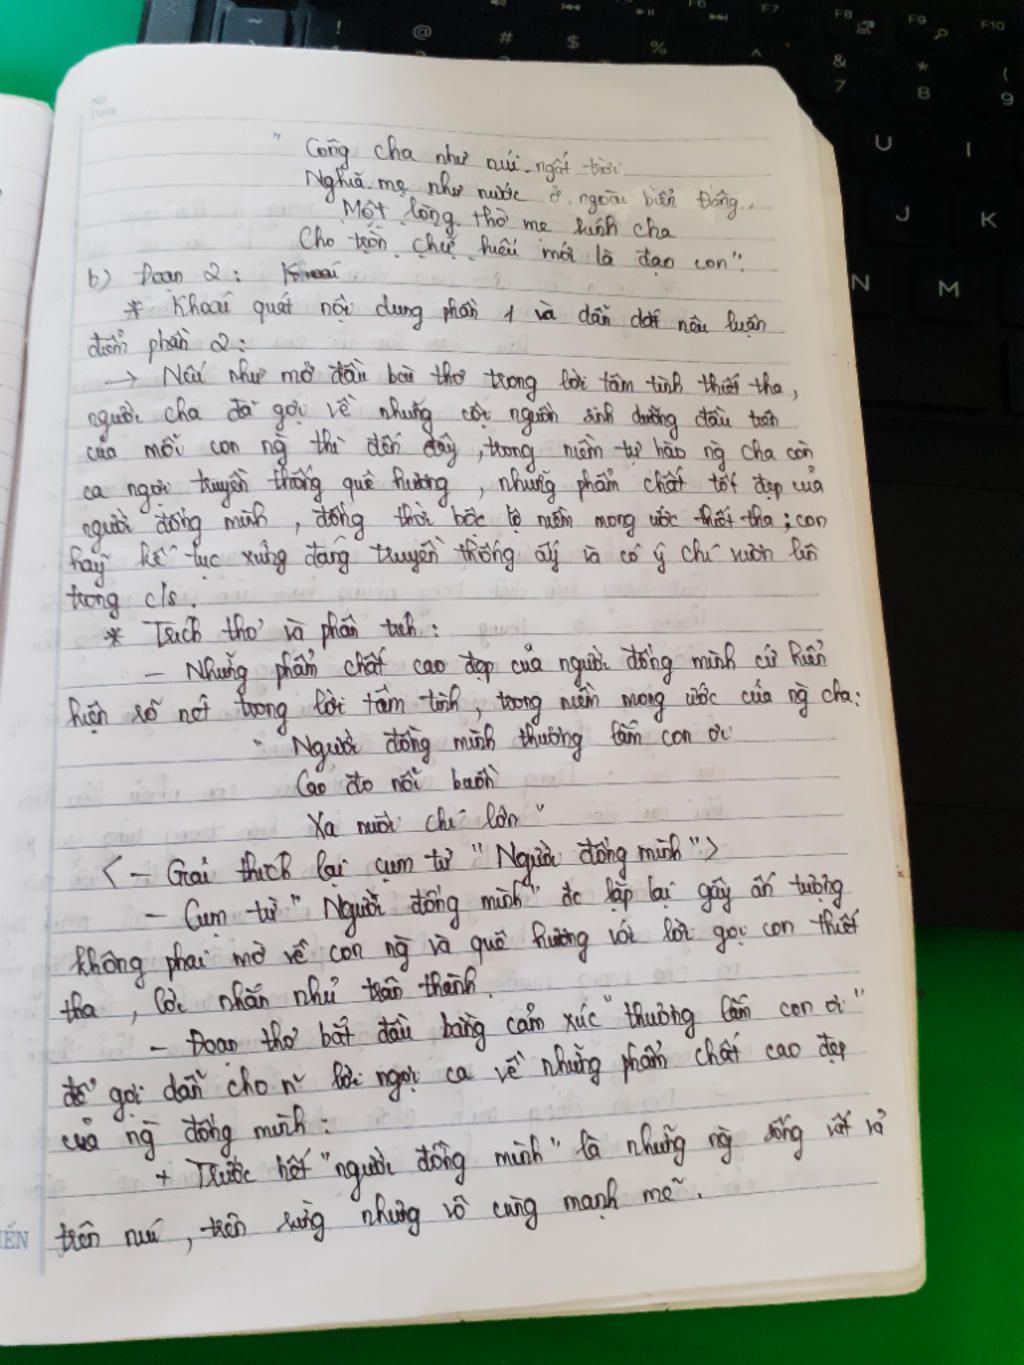 No
Date
" Công cha như núi ngất trời
Nghĩa mẹ như nước ở ngoài biển Đông.
Một lòng thờ mẹ kính cha
Cho tròn chữ hiếu mới là đạo con".
b) Đoạn 2:
* Khoái quát nội dung phần 1 và dẫn dắt nêu luận
điểm phần 2:
→ Nếu như mở đầu bài thơ trong lời tâm tình thiết tha,
người cha đã gợi về những cội nguồn sinh dưỡng đầu tiên
của mỗi con ng̀ thì đến đây, trong niềm tự hào ng̀ cha còn
ca ngợi truyền thống quê hương, những phẩm chất tốt đẹp của
người đồng mình, đồng thời bộc lộ niềm mong ước thiết tha; con
hãy kế tục xứng đáng truyền thống ấy và có ý chí vươn lên
trong c/s.
* Trích thơ và phân tích:
- Những phẩm chất cao đẹp của người đồng mình cứ hiển
hiện rõ nét trong lời tâm tình, trong niềm mong ước của ng̀ cha:
" Người đồng mình thương lắm con ơi
Cao đo nỗi buồn
Xa nuôi chí lớn "
< - Giải thích lại cụm từ "Người đồng mình">
- Cụm từ " Người đồng mình" đc lặp lại gây ấn tượng
không phai mờ về con ng̀ và quê hương với lời gọi con thiết
tha, lời nhắn nhủ trân thành.
- Đoạn thơ bắt đầu bằng cảm xúc "thương lắm con ơi"
để gợi dẫn cho n~ lời ngợi ca về những phẩm chất cao đẹp
của ng̀ đồng mình:
+ Trước hết "người đồng mình" là những ng̀ sống vất vả
trên núi, trên rừng nhưng vô cùng mạnh mẽ.
IẾN
~
!
@
#
$
%
^
&
7
*
8
(
9
F6
F7
F8
F9
F10
U
I
J
K
N
M